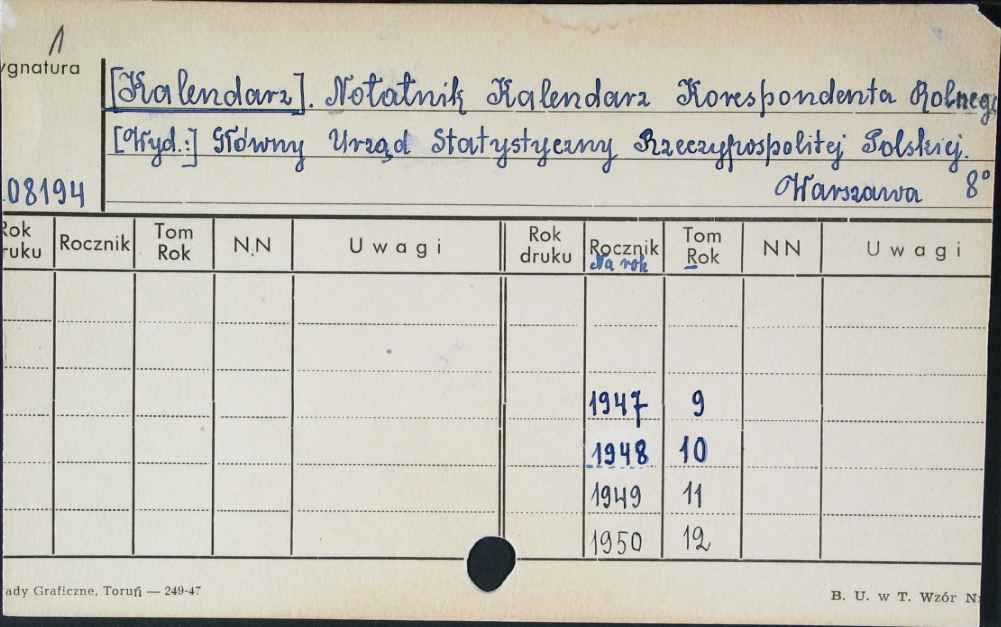 1
ygnatura
[Kalendarz]. Notatnik Kalendarz Korespondenta Rolneg
[Wyd.:] Główny Urząd Statystyczny Rzeczypospolitej Polskiej.
08194 Warszawa 8°
Rok druku Rocznik Tom Rok N.N Uwagi Rok druku Rocznik Na rok Tom Rok NN Uwagi
1947 9
1948 10
1949 11
1950 12
ady Graficzne, Toruń — 249-47 B. U. w T. Wzór N